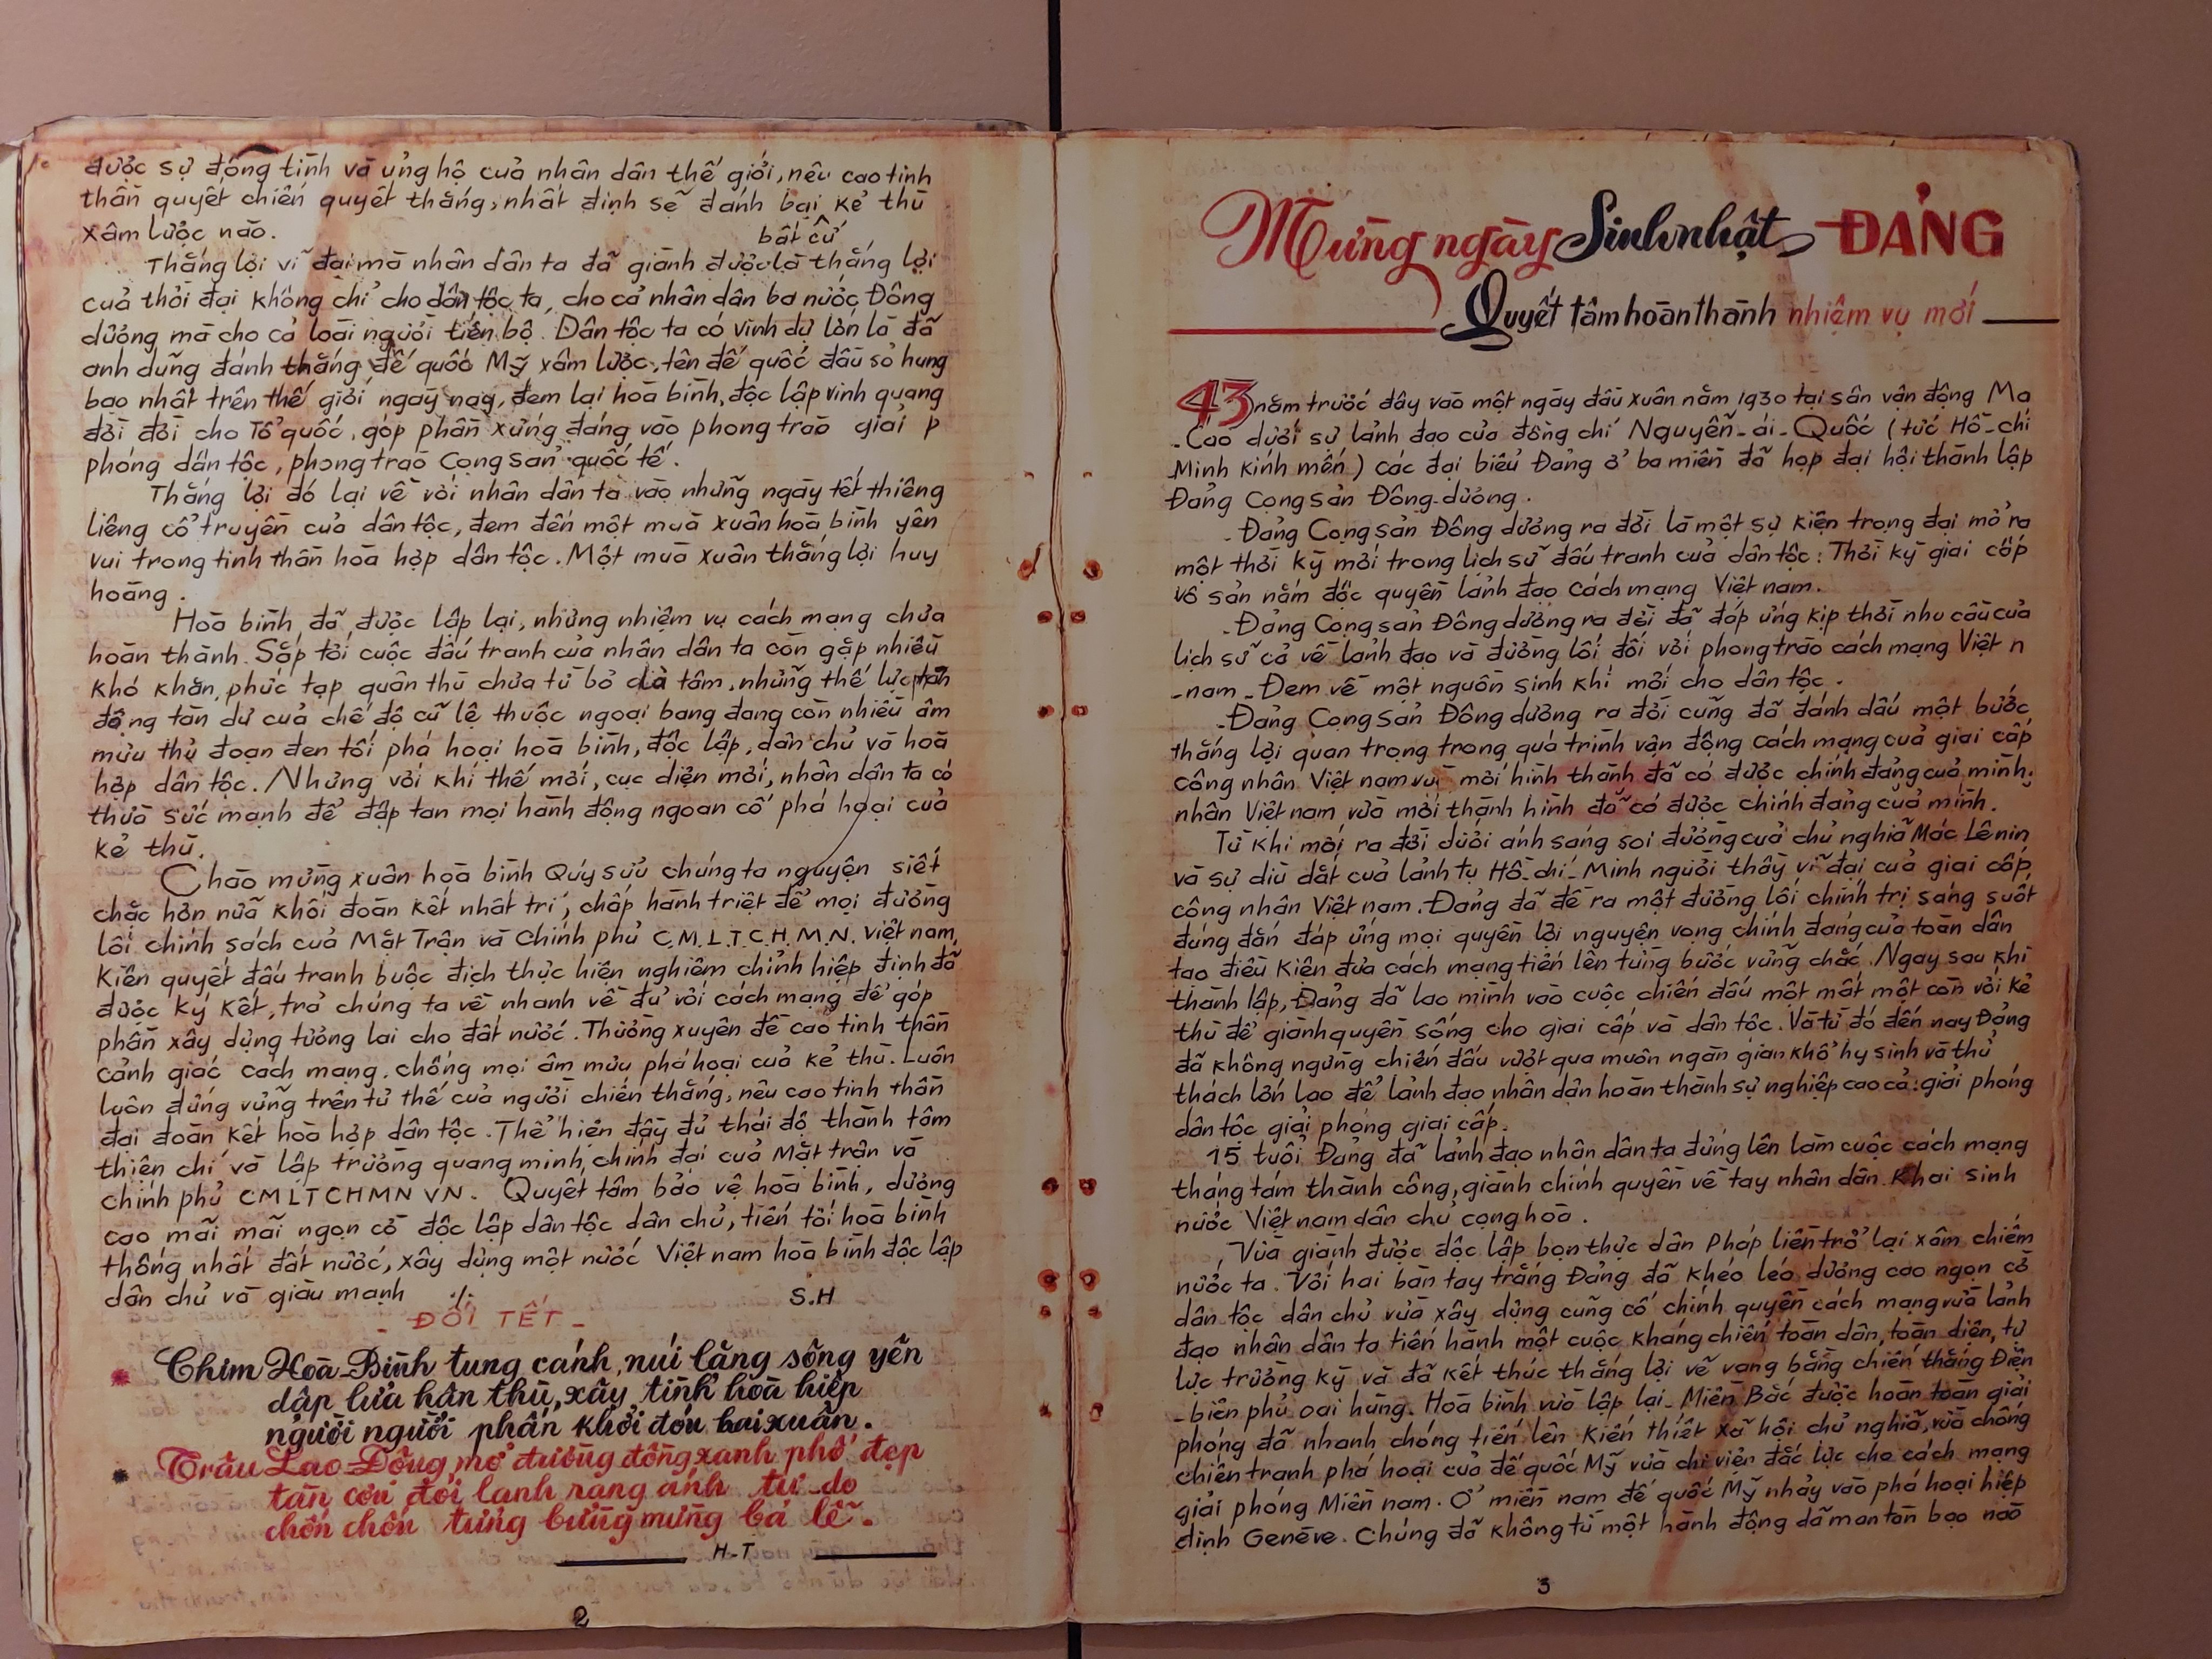 được sự đồng tình và ủng hộ của nhân dân thế giới, nêu cao tinh
thần quyết chiến quyết thắng, nhất định sẽ đánh bại kẻ thù
xâm lược nào.
bất cứ
Thắng lợi vĩ đại mà nhân dân ta đã giành được là thắng lợi
của thời đại không chỉ cho dân tộc ta, cho cả nhân dân ba nước Đông
dương mà cho cả loài người tiến bộ. Dân tộc ta có vinh dự lớn là đã
anh dũng đánh thắng đế quốc Mỹ xâm lược, tên đế quốc đầu sỏ hung
bạo nhất trên thế giới ngày nay, đem lại hoà bình, độc lập vinh quang
đời đời cho Tổ quốc, góp phần xứng đáng vào phong trào giải p
phóng dân tộc, phong trào Cọng sản quốc tế.
Thắng lợi đó lại về với nhân dân ta vào những ngày tết thiêng
liêng cổ truyền của dân tộc, đem đến một muà xuân hoà bình yên
vui trong tinh thần hoà hợp dân tộc. Một muà xuân thắng lợi huy
hoàng.
Hoà bình đã được lập lại, nhưng nhiệm vụ cách mạng chưa
hoàn thành. Sắp tới cuộc đấu tranh của nhân dân ta còn gặp nhiều
khó khăn, phức tạp quân thù chưa từ bỏ dã tâm, những thế lực phản
động tàn dư của chế độ cũ lệ thuộc ngoại bang đang còn nhiều âm
mưu thủ đoạn đen tối phá hoại hoà bình, độc lập, dân chủ và hoà
hợp dân tộc. Nhưng với khí thế mới, cục diện mới, nhân dân ta có
thừa sức mạnh để đập tan mọi hành động ngoan cố phá hoại của
kẻ thù.
Chào mừng xuân hoà bình Qúy sửu chúng ta nguyện siết
chặc hơn nữa khối đoàn kết nhất trí, chấp hành triệt để mọi đường
lối chính sách của Mặt Trận và Chính phủ C.M.L.T.C.H.M.N. Việt nam,
Kiên quyết đấu tranh buộc địch thực hiện nghiêm chỉnh hiệp định đã
được ký kết, trả chúng ta về nhanh về đủ với cách mạng để góp
phần xây dựng tương lai cho đất nước. Thường xuyên đề cao tinh thần
cảnh giác cách mạng. chống mọi âm mưu phá hoại của kẻ thù. Luôn
luôn đứng vững trên tư thế của người chiến thắng, nêu cao tinh thần
đại đoàn kết hoà hợp dân tộc. Thể hiện đầy đủ thái độ thành tâm
thiện chí và lập trường quang minh, chính đại của Mặt trận và
chính phủ CMLTCHMN VN. Quyết tâm bảo vệ hoà bình, dương
cao mãi mãi ngọn cờ độc lập dân tộc dân chủ, tiến tới hoà bình
thống nhất đất nước, xây dựng một nước Việt nam hoà bình độc lập
dân chủ và giàu mạnh ./. S.H
- ĐỐI TẾT -
* Chim Hoà-Bình tung cánh, núi lặng sông yên
dập lửa hận thù, xây tình hoà hiệp
người người phấn khởi đón hai xuân.
* Trâu Lao-Động mở đường đồng xanh phố đẹp
tàn cơn đói lạnh rạng ánh tự-do
chốn chốn tưng bừng mừng ba lễ.
H-T
2
Mừng ngày Sinh nhật ĐẢNG
Quyết tâm hoàn thành nhiệm vụ mới
43 năm trước đây vào một ngày đầu xuân năm 1930 tại sân vận động Ma
-Cao dưới sự lảnh đạo của đồng chí Nguyễn-ái-Quốc (tức Hồ-chí
Minh kính mến) các đại biểu Đảng ở ba miền đã họp đại hội thành lập
Đảng Cọng sản Đông-dương.
- Đảng Cọng sản Đông dương ra đời là một sự kiện trọng đại mở ra
một thời kỳ mới trong lịch sử đấu tranh của dân tộc: Thời kỳ giai cấp
vô sản nắm độc quyền lảnh đạo Cách mạng Việt nam.
- Đảng Cọng sản Đông dương ra đời đã đáp ứng kịp thời nhu cầu của
lịch sử cả về lảnh đạo và đường lối đối với phong trào cách mạng Việt n
-nam - Đem về một nguồn sinh khí mới cho dân tộc.
- Đảng Cọng sản Đông dương ra đời cũng đã đánh dấu một bước
thắng lợi quan trọng trong quá trình vận động Cách mạng của giai cấp
công nhân Việt nam vừa mới hình thành đã có được chính đảng của mình.
nhân Việt nam vừa mới thành hình đã có được chính đảng của mình.
Từ khi mới ra đời dưới ánh sáng soi đường của chủ nghiã Mác Lênin
và sự diù dắt của lảnh tụ Hồ-chí-Minh người thầy vĩ đại của giai cấp
công nhân Việt nam. Đảng đã đề ra một đường lối chính trị sáng suốt
đúng đắn đáp ứng mọi quyền lợi nguyện vọng chính đáng của toàn dân
tạo điều kiện đưa cách mạng tiến lên từng bước vững chắc. Ngay sau khi
thành lập, Đảng đã lao mình vào cuộc chiến đấu một mất một còn với kẻ
thù để giành quyền sống cho giai cấp và dân tộc. Và từ đó đến nay Đảng
đã không ngừng chiến đấu vượt qua muôn ngàn gian khổ hy sinh và thử
thách lớn lao để lảnh đạo nhân dân hoàn thành sự nghiệp cao cả: giải phóng
dân tộc giải phóng giai cấp.
15 tuổi Đảng đã lảnh đạo nhân dân ta đứng lên làm cuộc cách mạng
tháng tám thành công, giành chính quyền về tay nhân dân. Khai sinh
nước Việt nam dân chủ cọng hoà.
Vừa giành được độc lập bọn thực dân Pháp liền trở lại xâm chiếm
nước ta. Với hai bàn tay trắng Đảng đã khéo léo dương cao ngọn cờ
dân tộc dân chủ vừa xây dựng cũng cố chính quyền cách mạng vừa lảnh
đạo nhân dân ta tiến hành một cuộc kháng chiến toàn dân, toàn diện, tự
lực trường kỳ và đã kết thúc thắng lợi vẽ vang bằng chiến thắng Điện
-biên phủ oai hùng. Hoà bình vừa lập lại - Miền Bắc được hoàn toàn giải
phóng đã nhanh chóng tiến lên kiến thiết xã hội chủ nghiã, vừa chống
chiến tranh phá hoại của đế quốc Mỹ vừa chi viện đắc lực cho cách mạng
giải phóng Miền nam. Ở miền nam đế quốc Mỹ nhảy vào phá hoại hiệp
định Genève. Chúng đã không từ một hành động dã man tàn bạo nào
3